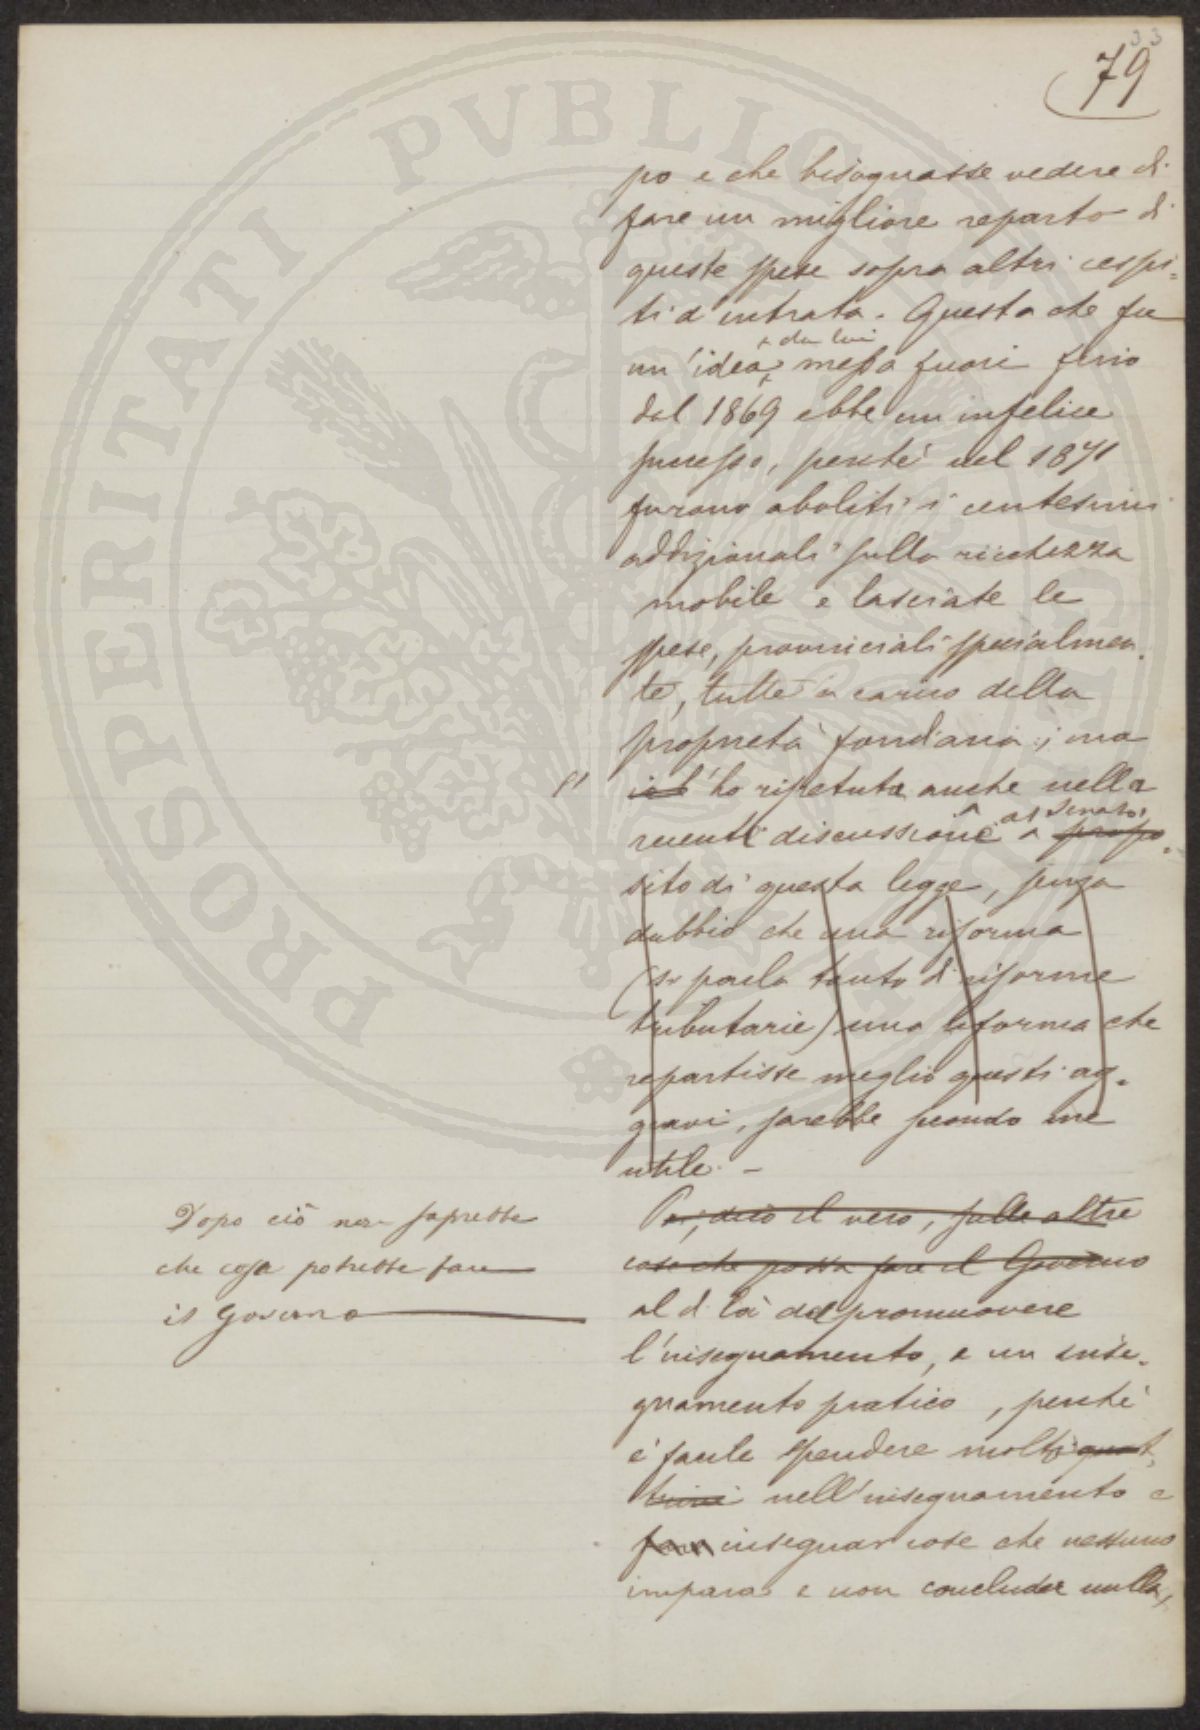 33
79
po e che bisognasse vedere di
fare un migliore reparto di
queste spese sopra altri cespi=
ti d'entrata. Questa che fu
da lui
un'idea messa fuori fino
dal 1869 ebbe un infelice
successo, perchè nel 1871
furono aboliti i centesimi
addizionali sulla ricchezza
mobile e lasciate le
spese, provinciali specialmen=
te, tutte a carico della
proprietà fondiaria; ma
l'ho ripetuta anche nella
al Senato
recente discussione propo=
sito di questa legge, senza
dubbio che una riforma
(si parla tanto di riforme
tributarie) una riforma che
repartisse meglio questi ag=
gravi, sarebbe secondo me
utile. -
Dopo ciò non saprebbe
che cosa potrebbe fare
il Governo
Poi, dico il vero, sulle altre
cose che possa fare il Governo
al di là del promuovere
l'insegnamento, e un inse=
gnamento pratico, perchè
è facile spendere molti quat=
trini nell'insegnamento e
insegnar cose che nessuno
impara e non concluder nulla,
PROSPERITATI PVBLICAE